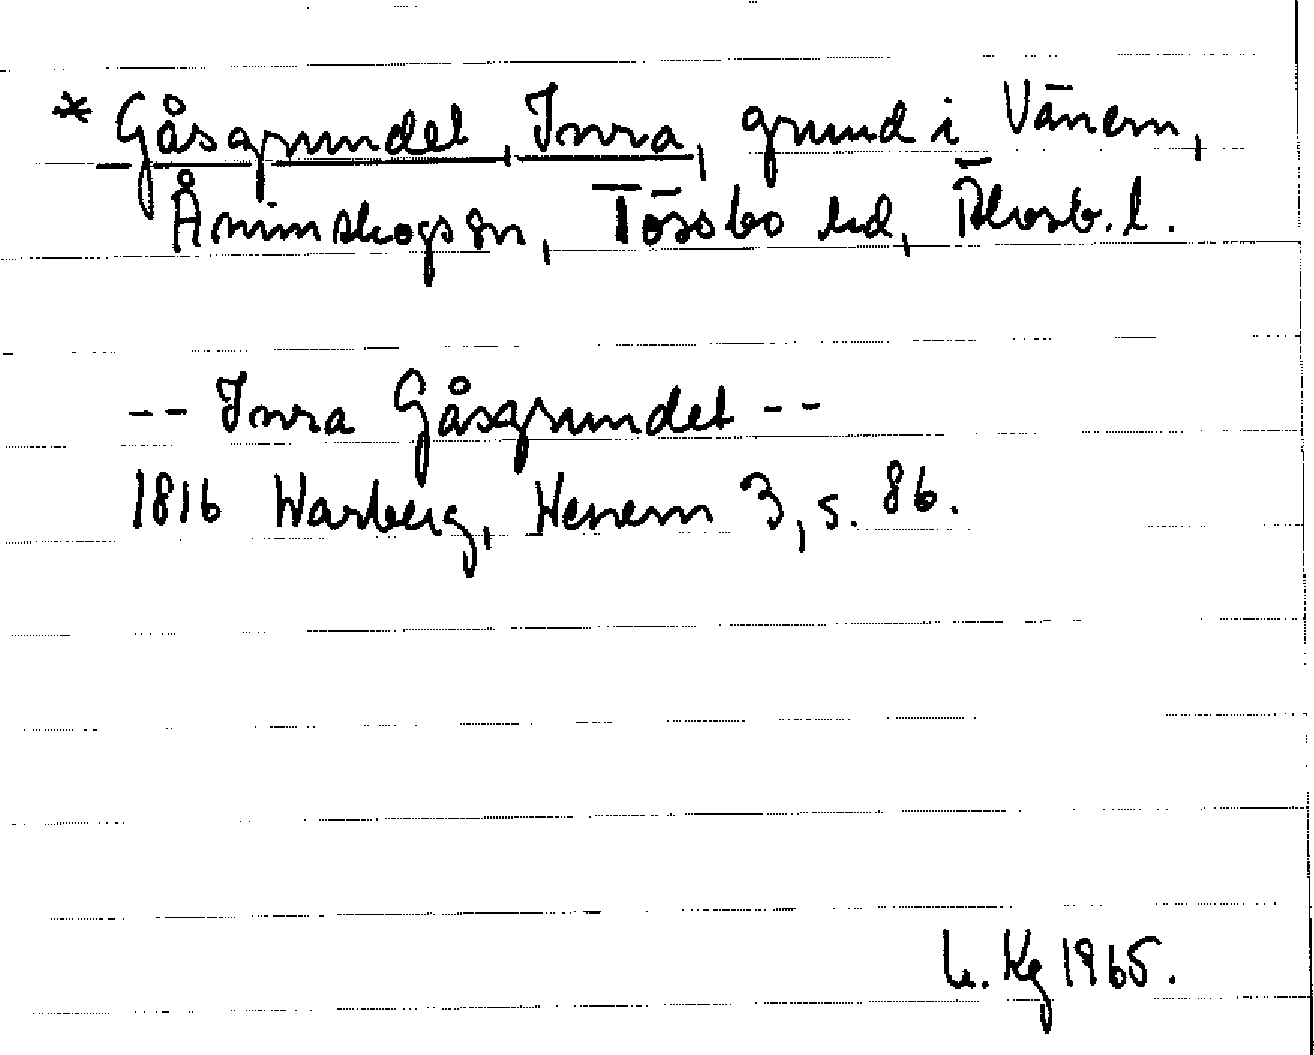 * Gåsgrundet, Inra, grund i Vänern,
Ånimskogs sn, Tössbo hd, Älvsb. l.
-- Inra Gåsgrundet --
1816 Warberg, Wenern 3, s. 86.
Kg 1965.